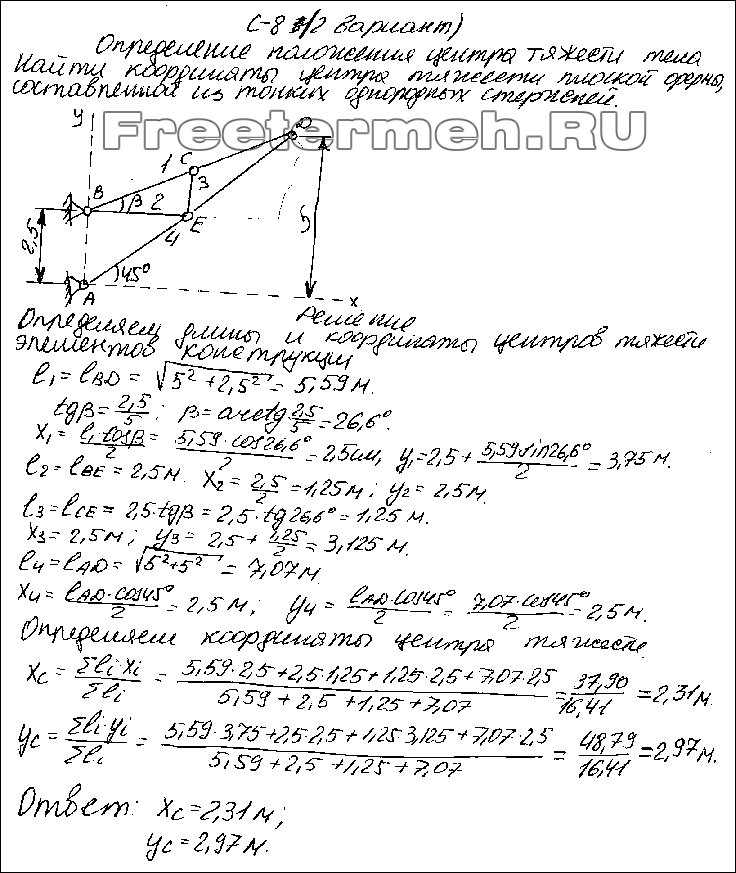 С-8 (12 вариант)
Определение положения центра тяжести тела
Найти координаты центра тяжести плоской фермы,
составленной из тонких однородных стержней.
Freetermeh.RU
y
D
1 C
3
B
β 2
E
4
2,5
5
45°
A
x
Решение
Определяем длины и координаты центров тяжести
элементов конструкции
l₁ = l_BD = √(5² + 2,5²) = 5,59 м.
tgβ = 2,5/5 ; β = arctg 2,5/5 = 26,6°.
x₁ = l₁·cosβ/2 = 5,59·cos26,6°/2 = 2,5 м, y₁ = 2,5 + 5,59 sin26,6°/2 = 3,75 м.
l₂ = l_BE = 2,5 м. x₂ = 2,5/2 = 1,25 м ; y₂ = 2,5 м.
l₃ = l_CE = 2,5·tgβ = 2,5·tg26,6° = 1,25 м.
x₃ = 2,5 м ; y₃ = 2,5 + 1,25/2 = 3,125 м.
l₄ = l_AD = √(5²+5²) = 7,07 м.
x₄ = l_AD·cos45°/2 = 2,5 м ; y₄ = l_AD·cos45°/2 = 7,07·cos45°/2 = 2,5 м.
Определяем координаты центра тяжести.
xc = Σli xi/Σli = 5,59·2,5+2,5·1,25+1,25·2,5+7,07·2,5/5,59+2,5+1,25+7,07 = 37,90/16,41 = 2,31 м.
yc = Σli·yi/Σli = 5,59·3,75+2,5·2,5+1,25·3,125+7,07·2,5/5,59+2,5+1,25+7,07 = 48,79/16,41 = 2,97 м.
Ответ: xc = 2,31 м;
yc = 2,97 м.